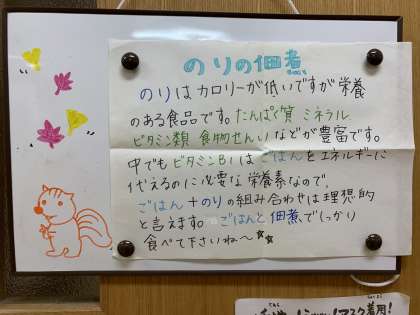 のりの佃煮
のりはカロリーが低いですが栄養
のある食品です。たんぱく質 ミネラル
ビタミン類 食物せんいなどが豊富です。
中でもビタミンB1はごはんをエネルギーに
代えるのに必要な栄養素なので、
ごはん+のりの組み合わせは理想的
と言えます。ごはんと佃煮でしっかり
食べて下さいね〜☆☆
マスク着用!